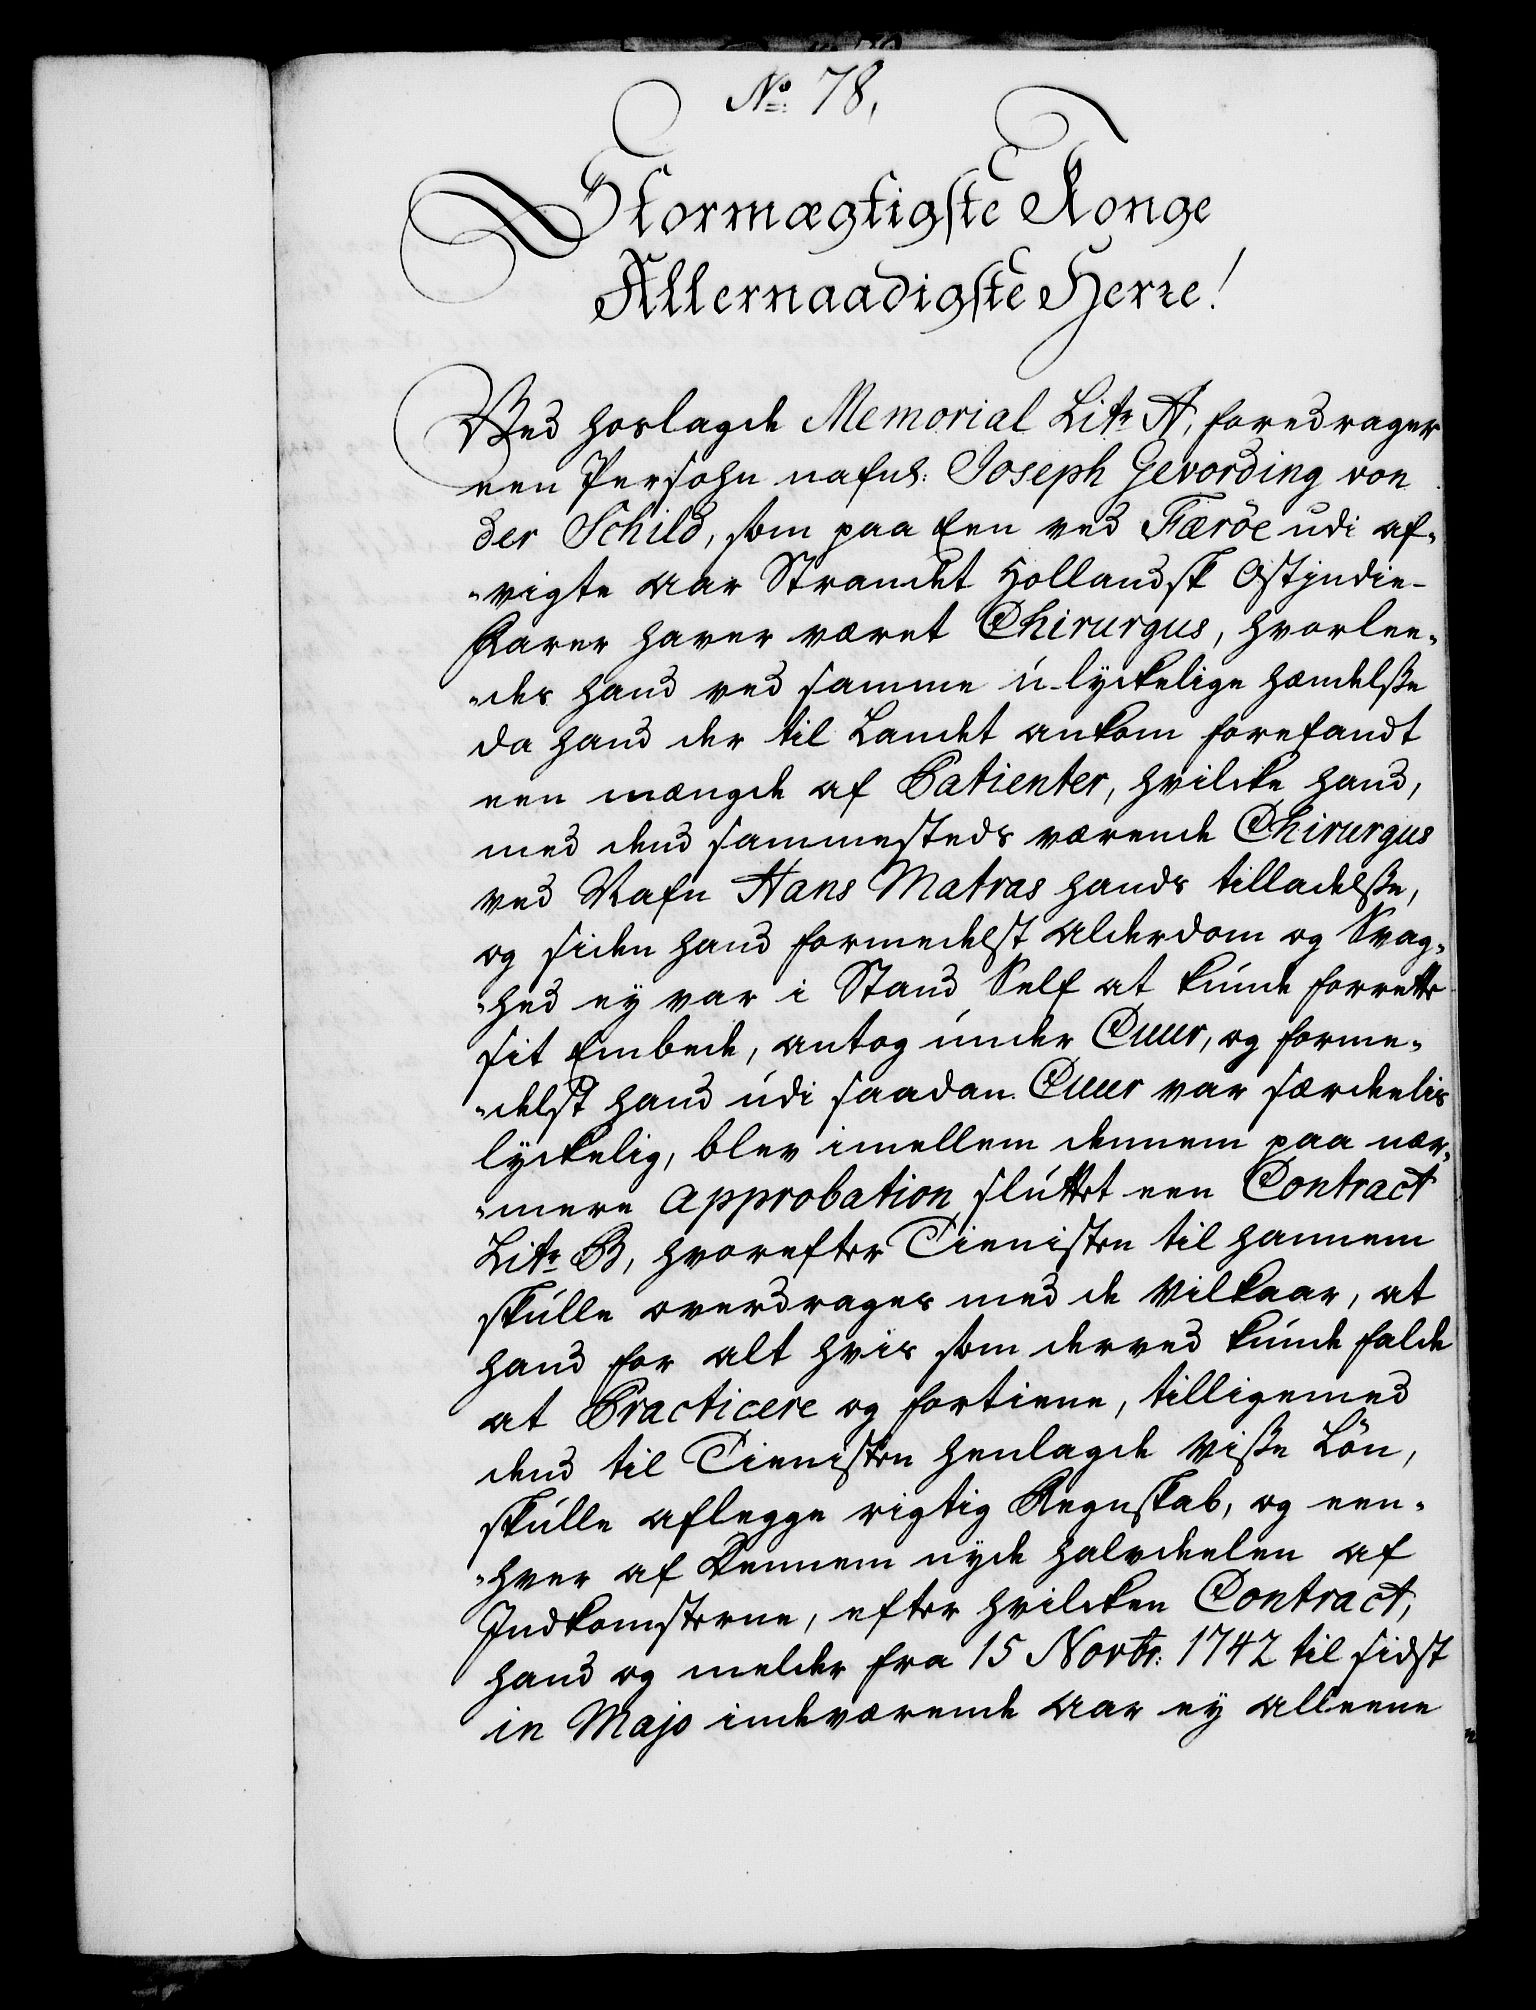 No: 78,
Stormægtigste Konge
Allernaadigste Herre!
Ved hoslagde Memorial Litr A, foredrager
een Persohn nafnl: Joseph Gevording von
der Schild, som paa Een ved Færöe udi af-
-vigte Aar Strandet Hollandsk Ostjndie-
farer haver været Chirurgus, hvorlee-
-des hand ved samme u-lyckelige hændelsse
da hand der til Landet ankom forefandt
een mængde af Patienter, hvilcke hand,
med dend sammesteds værende Chirurgus
ved Nafn Hans Matras hands tilladelsse,
og siden hand formedelst Alderdom og Svag-
-hed ey var i Stand Self at kunde forrette
sit Embede, antog under Cuur, og forme-
-delst hand udi saadan Cuur var særdeelis
lyckelig, blev imellem dennem paa nær-
-mere Approbation sluttet een Contract
Litr B, hvorefter Tienisten til hannem
skulle overdrages med de Vilkaar, at
hand for alt hvis som derved kunde falde
at Practicere og fortiene, tilligemed
dend til Tienisten henlagde visse Lön,
skulle aflegge rigtig Regnskab, og een-
-hver af Dennem nyde halvdeelen af
Indkomsterne, efter hvilcken Contract,
hand og melder fra 15 Novbr: 1742 til sidst
in Majo indeværende Aar ey alleene